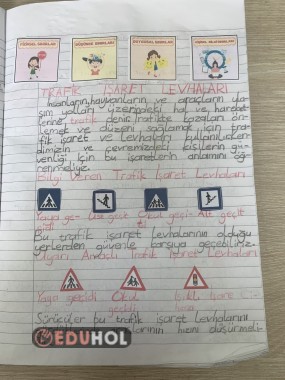 TRAFİK İŞARET LEVHALARI
İnsanların, hayvanların ve araçların ula-
şım yolları üzerindeki hal ve hareket-
lerine trafik denir. Trafikte kazaları ön-
lemek ve düzeni sağlamak için tra-
fik işaret ve levhaları kullanılır. Ken-
dimizin ve çevremizdeki kişilerin gü-
venliği için bu işaretlerin anlamını öğ-
renmeliyiz.
Bilgi Veren Trafik İşaret Levhaları
Yaya ge- Üst geçit Okul geçi- Alt geçit
Bu trafik işaret levhalarının olduğu
yerlerden güvenle karşıya geçebiliriz.
Uyarı Amaçlı Trafik İşaret Levhaları
Yaya geçidi Okul Işıklı işare
geçidi
Sürücüler bu trafik işaret levhalarını
EDUHOL hızını düşürmeli-